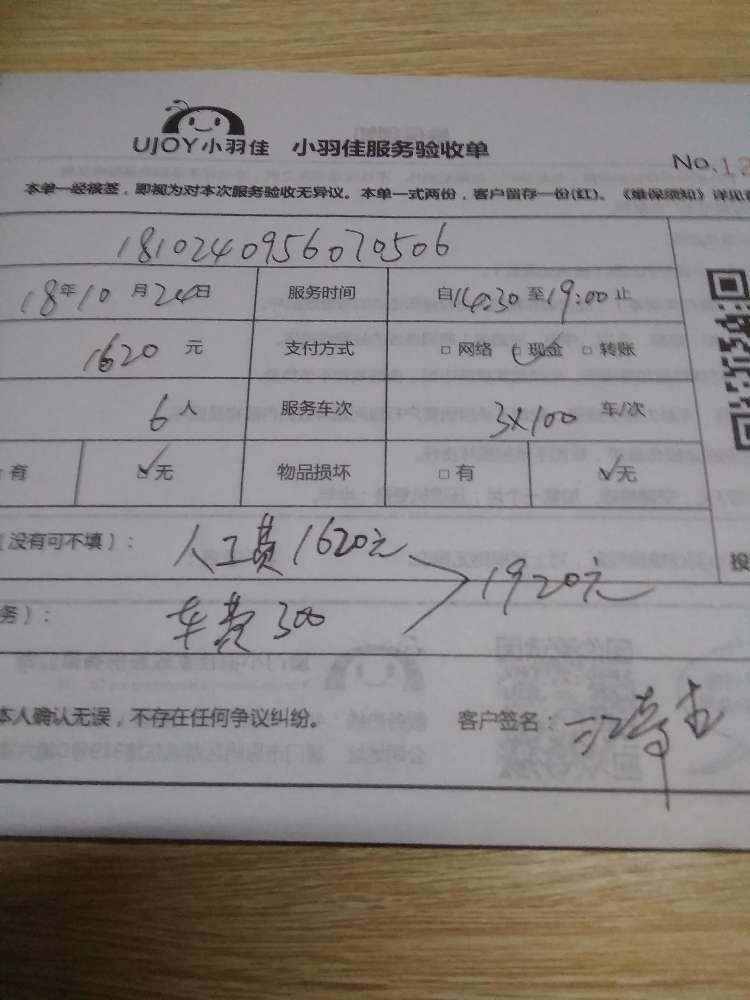 UJOY小羽佳 小羽佳服务验收单
No.18
本单一经核签，即视为对本次服务验收无异议。本单一式两份，客户留存一份(红)。《维保须知》详见
1810240956070506
18年10月24日 服务时间 自14:30至19:00止
1620元 支付方式 □网络 □现金 □转账
6人 服务车次 3×100 车/次
有 无 物品损坏 □有 无
(没有可不填)： 人工费1620元
1920元
务)： 车费300
投
本人确认无误，不存在任何争议纠纷。 客户签名：